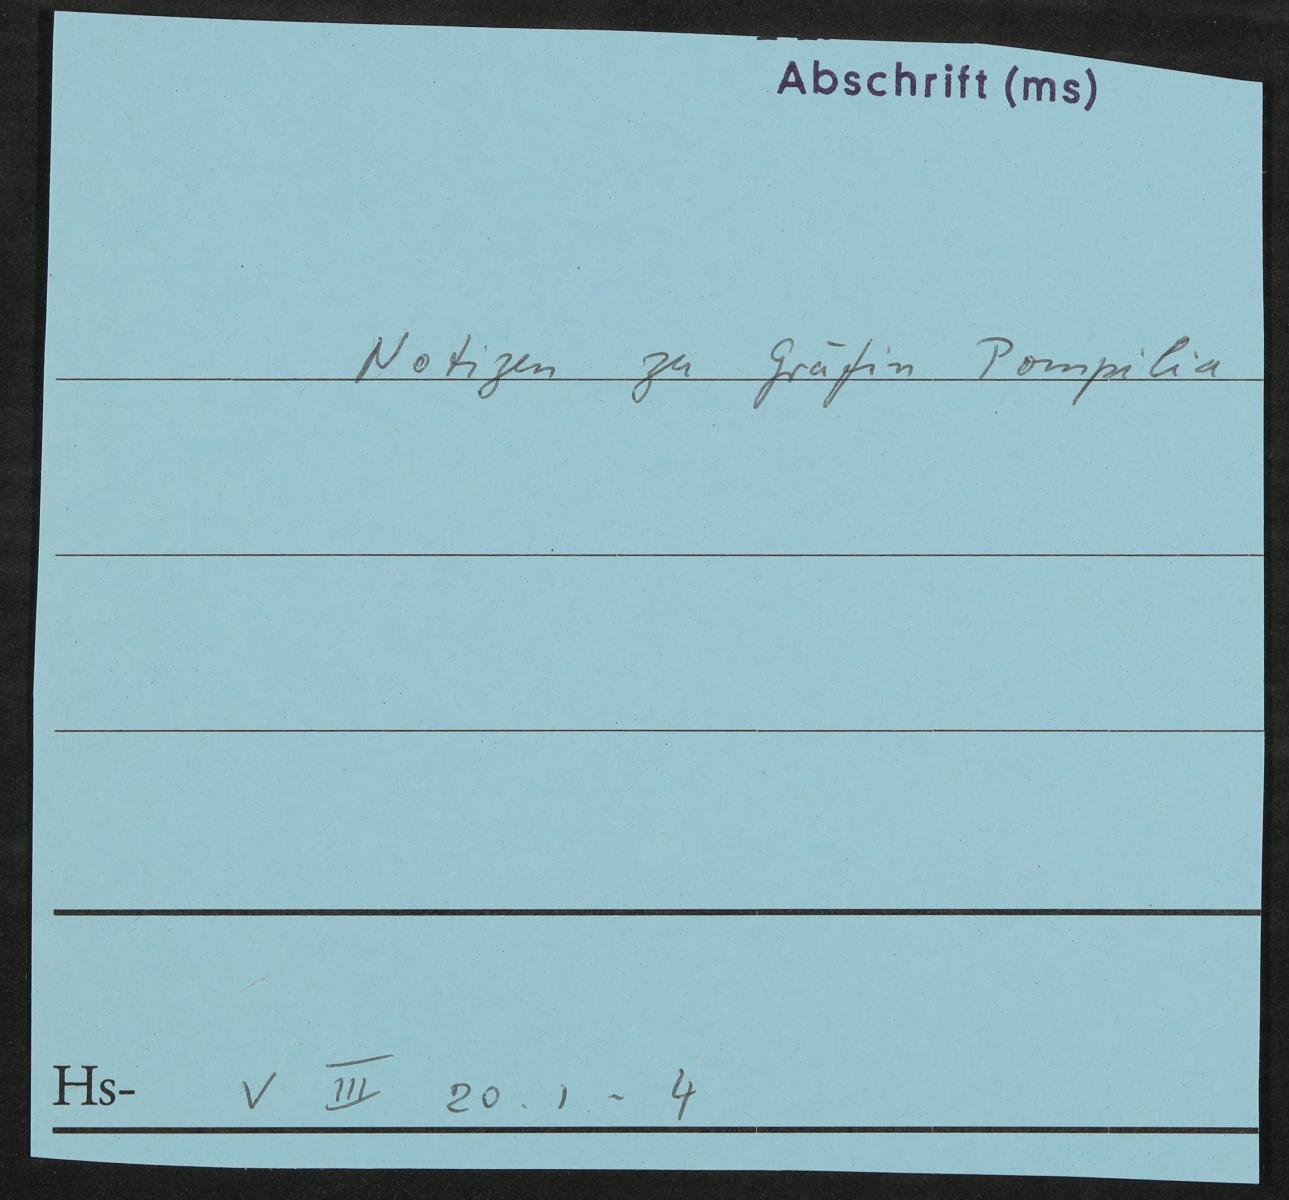 Abschrift (ms)
Notizen zu Gräfin Pompilia
Hs- V III 20.1-4